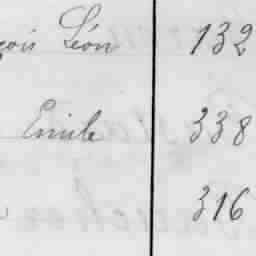 çois Léon 132
Emile 338
316